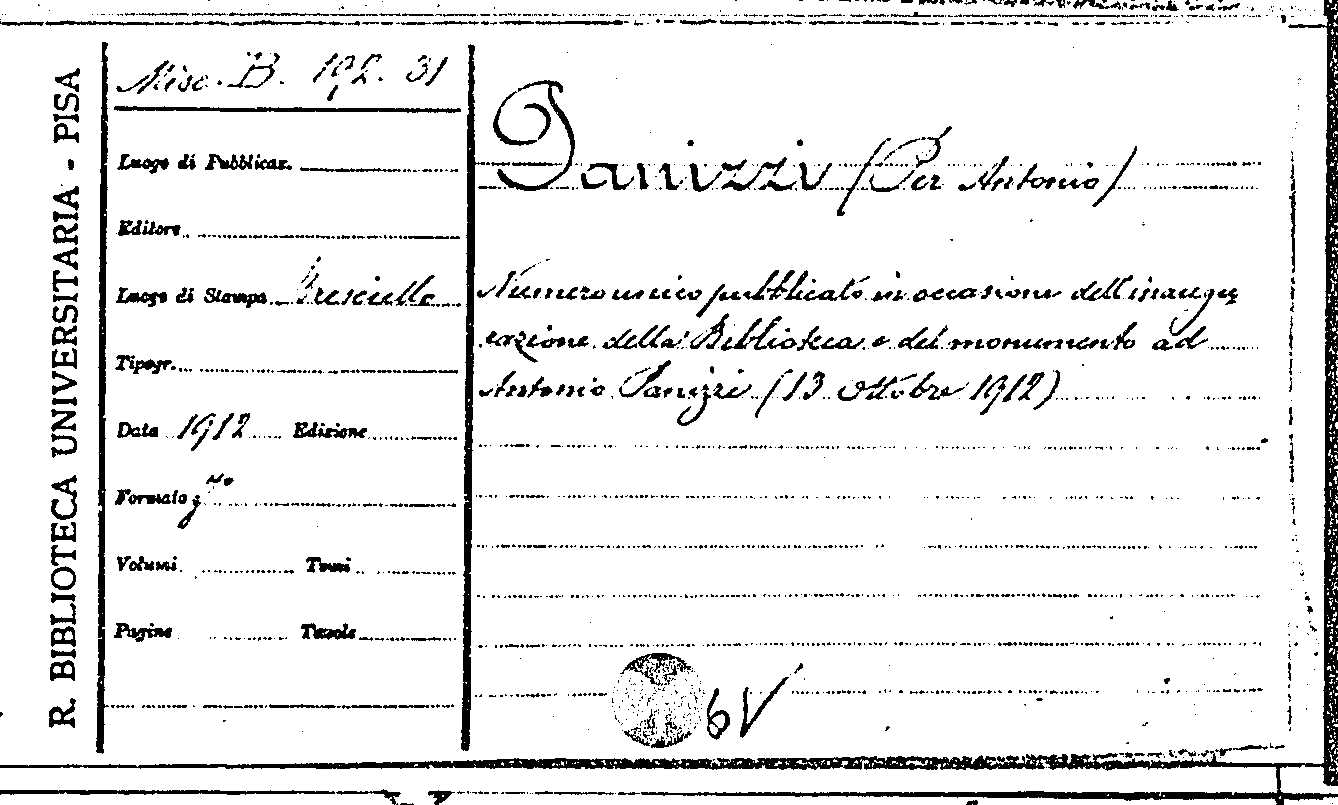 R. BIBLIOTECA UNIVERSITARIA - PISA
Misc. B. 192. 31
Luogo di Pubblicaz.
Editore
Luogo di Stampa Brescello
Tipogr.
Data 1912 Edizione
Formato
Volumi Tomi
Pagine Tavole
Panizzi (Per Antonio)
Numero unico pubblicato in occasione dell'inaugu
razione della Biblioteca e del monumento ad
Antonio Panizzi (13 ottobre 1912)
6V